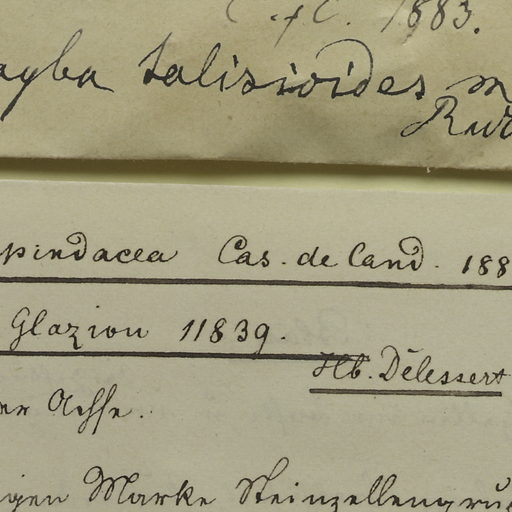 1883.
ayba talisioides m
Rad
pindacea Cas. de Cand. 188
Glaziou 11839.
Hb. Delessert
er Achse.
igen Marke Steinzellengru